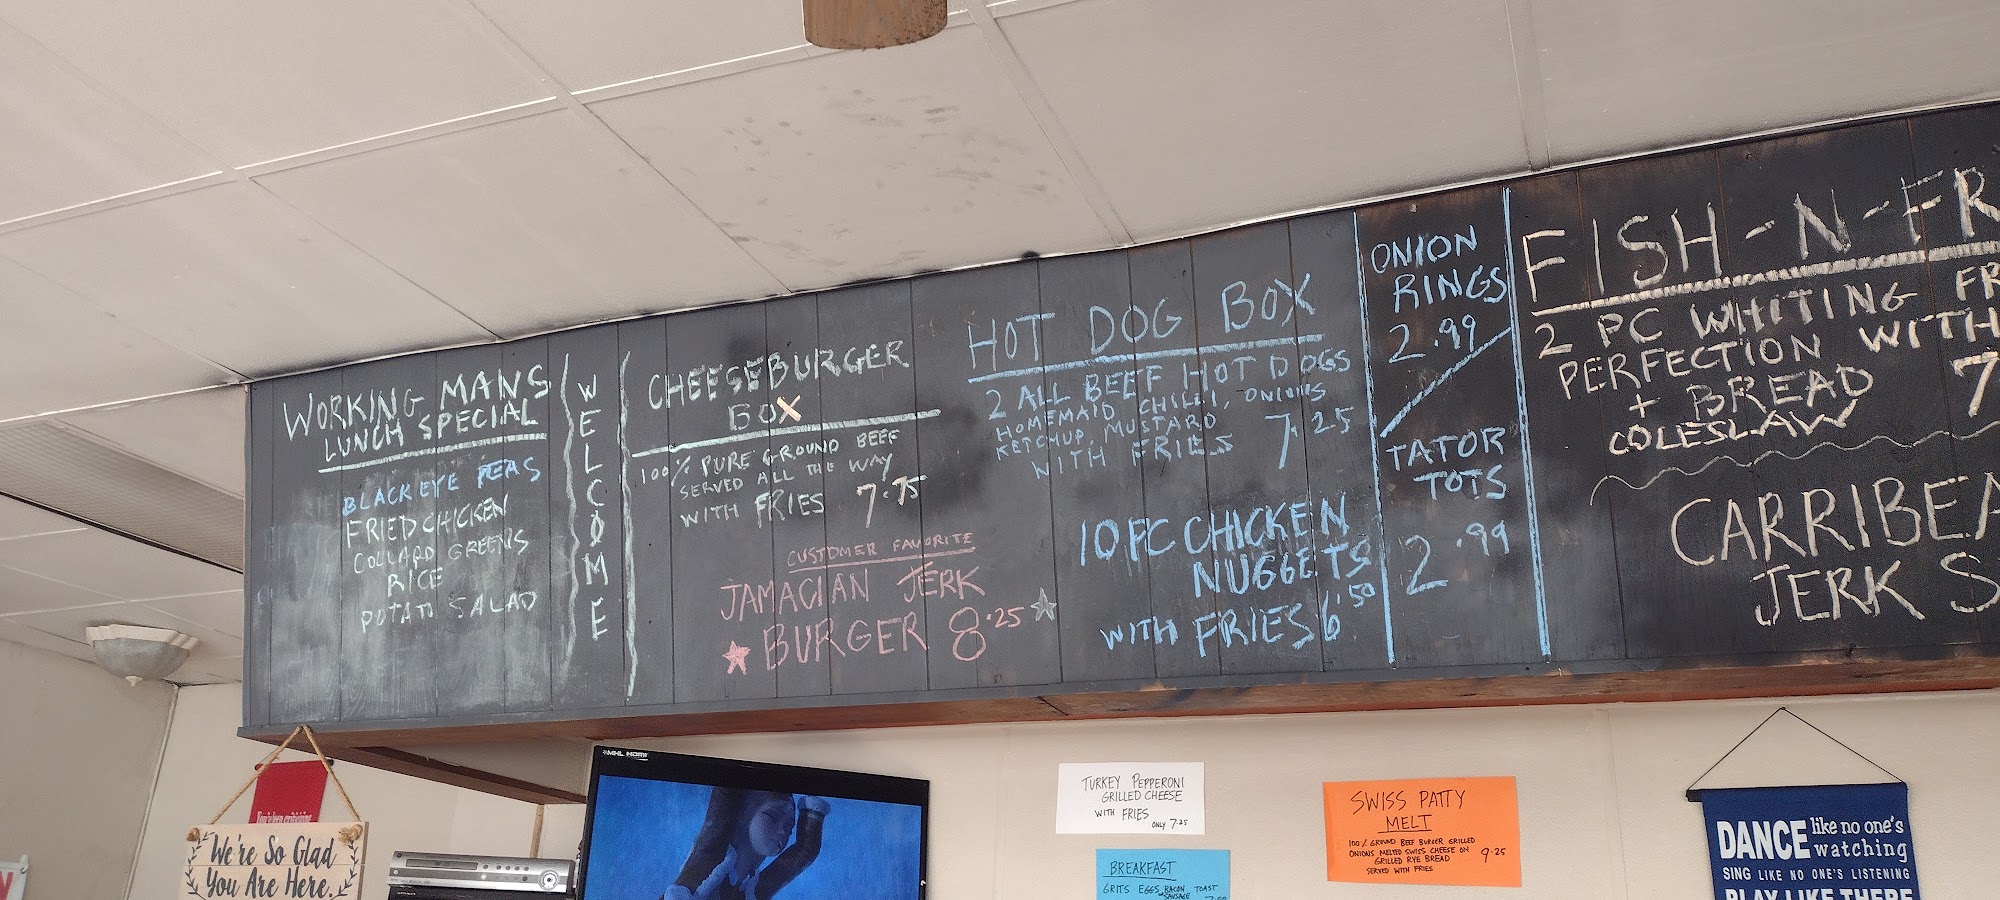 WORKING MANS
LUNCH SPECIAL
BLACK EYE PEAS
FRIED CHICKEN
COLLARD GREENS
RICE
POTATO SALAD
WELCOME
CHEESEBURGER
BOX
100% PURE GROUND BEEF
SERVED ALL THE WAY
WITH FRIES 7.75
CUSTOMER FAVORITE
JAMACIAN JERK
BURGER 8.25
HOT DOG BOX
2 ALL BEEF HOT DOGS
HOMEMAID CHILLI, ONIONS
KETCHUP, MUSTARD
WITH FRIES 7.25
10 PC CHICKEN
NUGGETS
WITH FRIES 6.50
ONION
RINGS
2.99
TATOR
TOTS
2.99
FISH-N-FR
2 PC WHITING FR
PERFECTION WITH
+ BREAD 7
COLESLAW
CARRIBEA
JERK S
MHL HDMI
We're So Glad
You Are Here.
TURKEY PEPPERONI
GRILLED CHEESE
WITH FRIES
ONLY 7.25
BREAKFAST
GRITS EGGS BACON TOAST
SAUSAGE
SWISS PATTY
MELT
100% GROUND BEEF BURGER GRILLED
ONIONS MELTED SWISS CHEESE ON
GRILLED RYE BREAD 9.25
SERVED WITH FRIES
DANCE like no one's
watching
SING LIKE NO ONE'S LISTENING
PLAY LIKE THERE